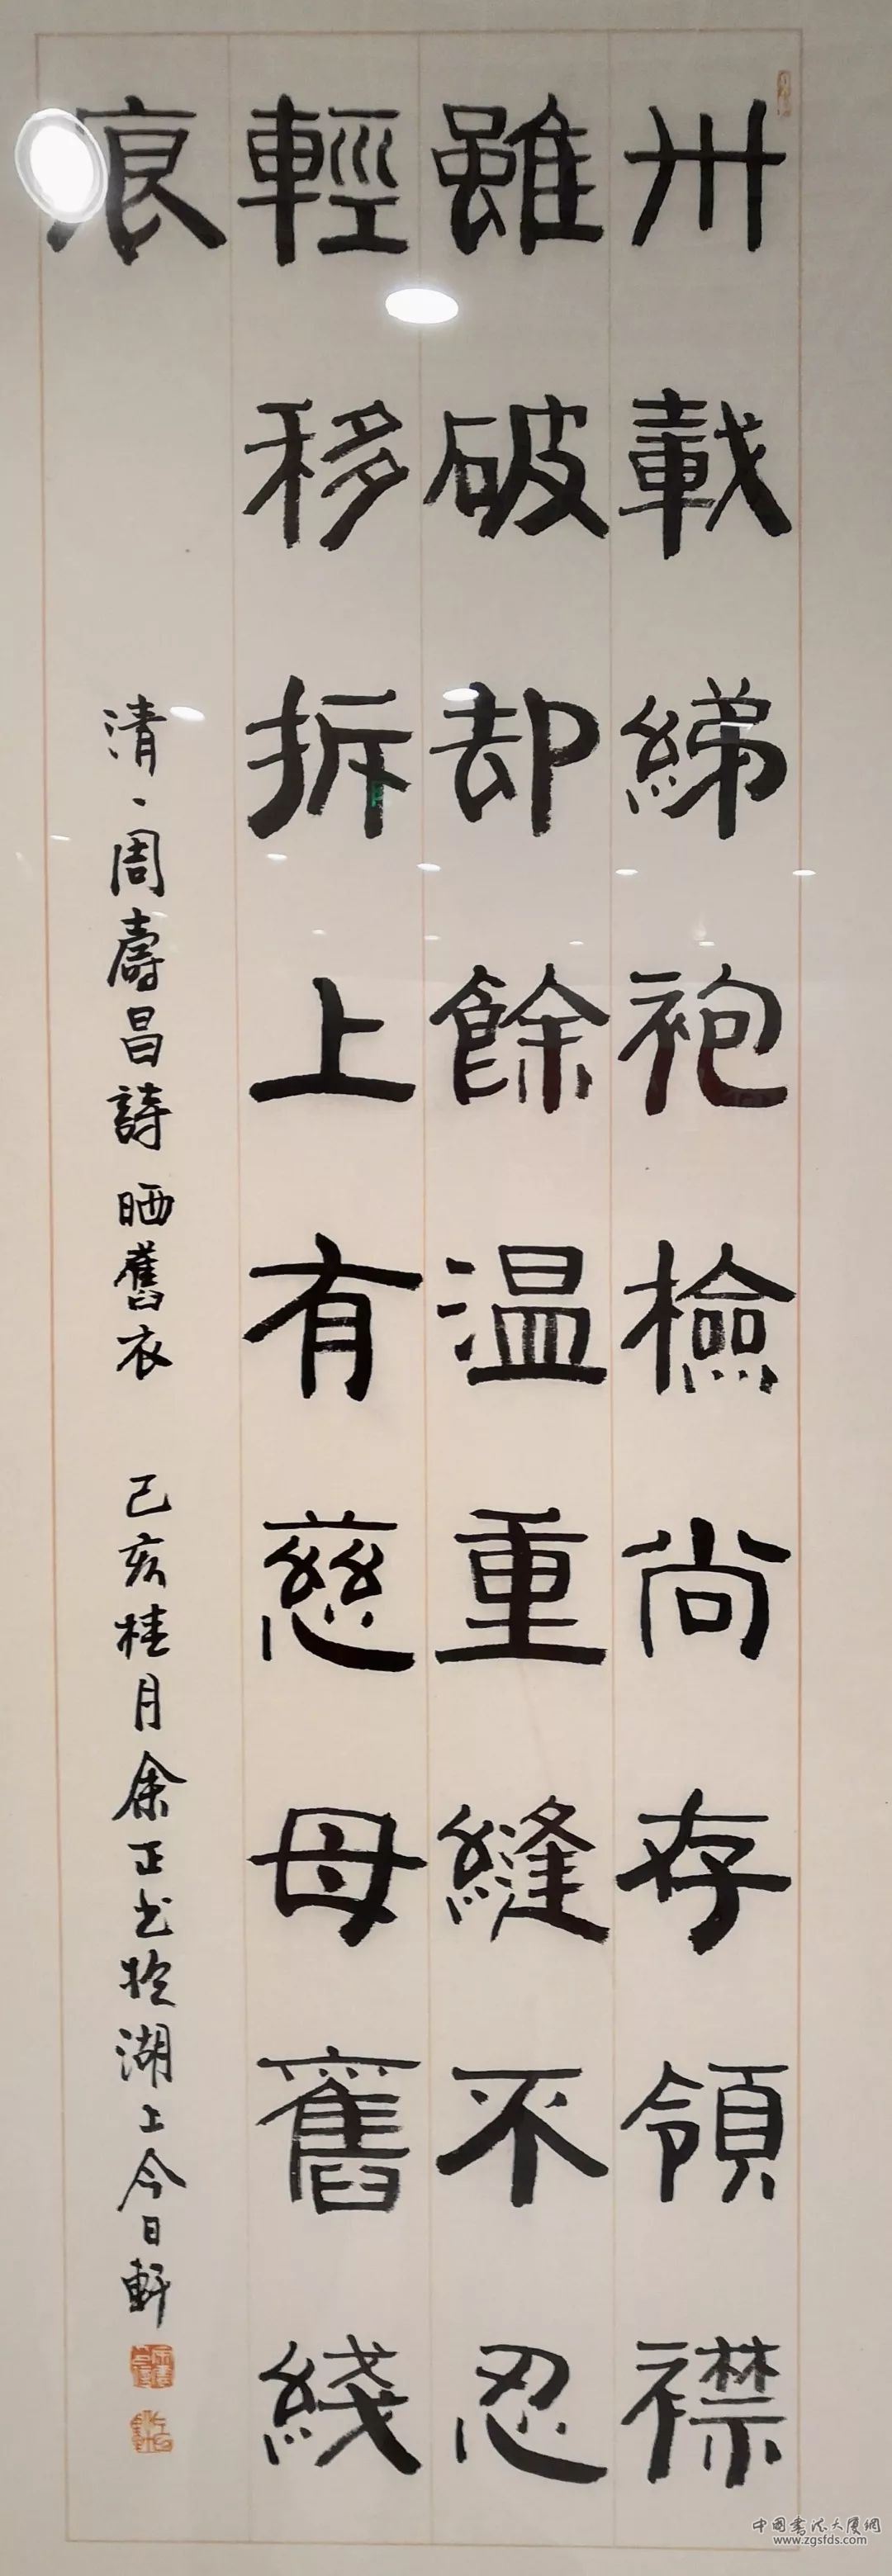 卅載綈袍檢尚存領襟
雖破却餘温重縫不忍
輕移拆上有慈母舊綫
痕
清、周壽昌詩 晒舊衣 己亥桂月余正书於湖上今日軒
中国书法大厦網
www.zgsfds.com